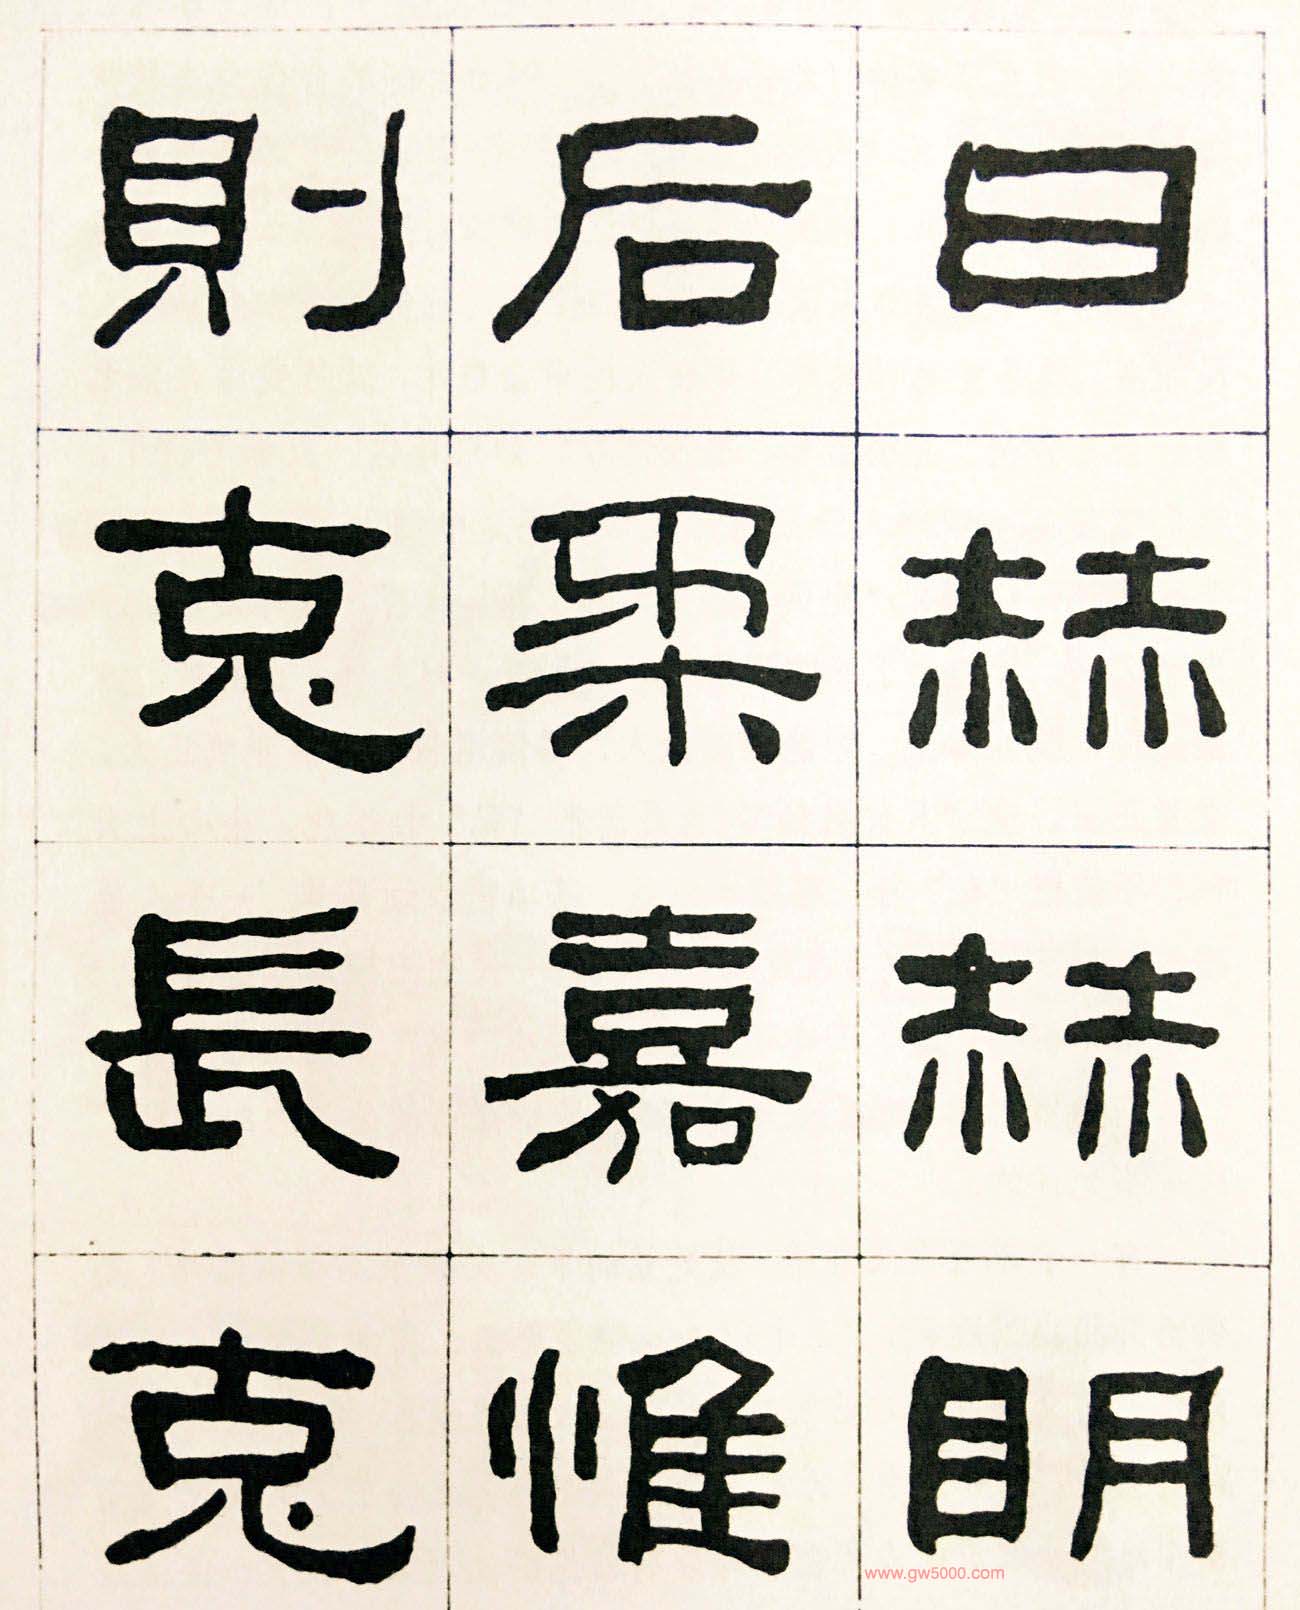 曰赫赫眀
后柔嘉惟
則克長克
www.gw5000.com